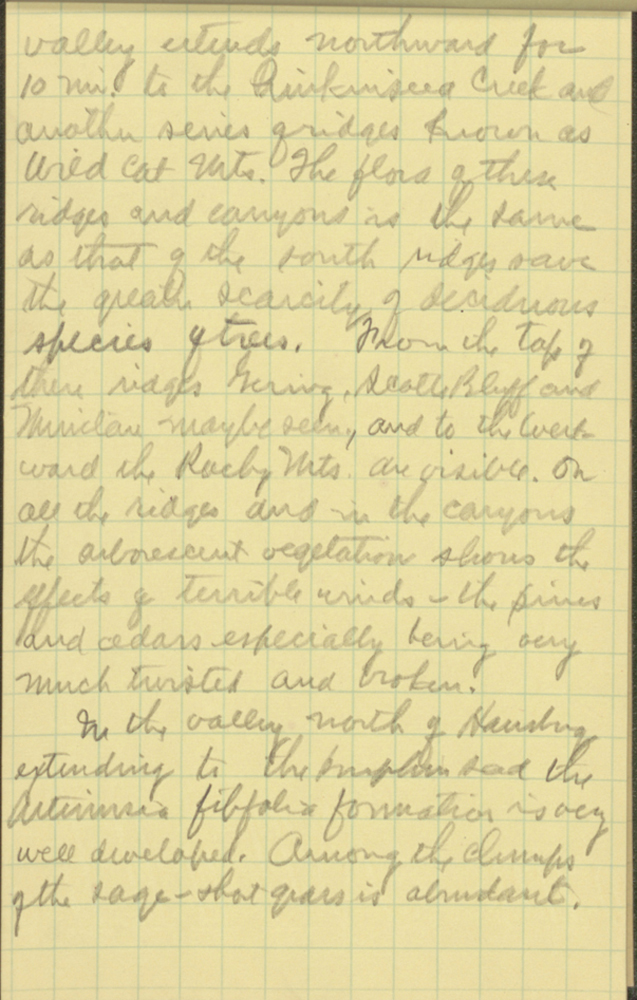 valley extends northward for
10 mi. to the Pumpkinseed Creek and
another series of ridges known as
Wild Cat Mts. The flora of these
ridges and canyons is the same
as that of the south ridges save
the greater scarcity of deciduous
species of trees. From the top of
these ridges Gering, Scotts Bluff and
may be seen, and to the west-
ward the Rocky Mts. are visible. On
all the ridges and in the canyons
the arborescent vegetation shows the
effects of terrible winds - the pines
and cedars especially being very
much twisted and broken.
In the valley north of
extending to the the
Artemisia filifolia formation is very
well developed. Among the clumps
of the sage - shot grass is abundant.